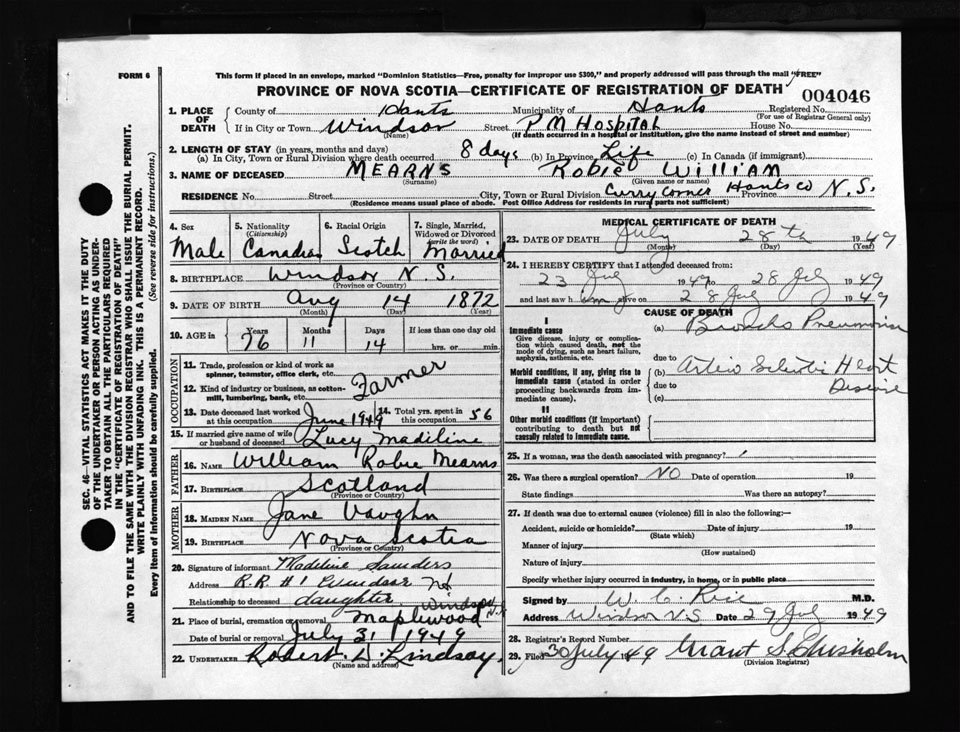 FORM 6
This form if placed in an envelope, marked "Dominion Statistics—Free, penalty for improper use $300," and properly addressed will pass through the mail "FREE"
PROVINCE OF NOVA SCOTIA—CERTIFICATE OF REGISTRATION OF DEATH
004046
SEC. 46—VITAL STATISTICS ACT MAKES IT THE DUTY
OF THE UNDERTAKER OR PERSON ACTING AS UNDER-
TAKER TO OBTAIN ALL THE PARTICULARS REQUIRED
IN THE "CERTIFICATE OF REGISTRATION OF DEATH"
AND TO FILE THE SAME WITH THE DIVISION REGISTRAR WHO SHALL ISSUE THE BURIAL PERMIT.
WRITE PLAINLY WITH UNFADING INK. THIS IS A PERMANENT RECORD.
Every item of Information should be carefully supplied. (See reverse side for instructions.)
1. PLACE OF DEATH County of Hants Municipality of Hants Registered No.
(For use of Registrar General only)
If in City or Town Windsor Street P M Hospital House No.
(Name) (If death occurred in a hospital or institution, give the name instead of street and number)
2. LENGTH OF STAY (in years, months and days)
(a) In City, Town or Rural Division where death occurred 8 days (b) In Province Life (c) In Canada (if immigrant)
3. NAME OF DECEASED MEARNS Robie William
(Surname) (Given name or names)
RESIDENCE No. Street City, Town or Rural Division Curry Corner Province Hants Co N.S.
(Residence means usual place of abode. Post Office Address for residents in rural parts not sufficient)
4. Sex Male
5. Nationality (Citizenship) Canadian
6. Racial Origin Scotch
7. Single, Married, Widowed or Divorced (write the word) Married
8. BIRTHPLACE Windsor N.S.
(Province or Country)
9. DATE OF BIRTH Aug 14 1872
(Month) (Day) (Year)
10. AGE in Years Months Days If less than one day old
76 11 14 hrs. or min.
OCCUPATION
11. Trade, profession or kind of work as spinner, teamster, office clerk, etc.
Farmer
12. Kind of industry or business, as cotton-mill, lumbering, bank, etc.
13. Date deceased last worked at this occupation June 1949 14. Total yrs. spent in this occupation 56
15. If married give name of wife or husband of deceased Lucy Madiline
FATHER
16. NAME William Robie Mearns
17. BIRTHPLACE Scotland
(Province or Country)
MOTHER
18. MAIDEN NAME Jane Vaughn
19. BIRTHPLACE Nova Scotia
(Province or Country)
20. Signature of informant Madiline Saunders
Address R.R #1 Windsor
Relationship to deceased daughter
21. Place of burial, cremation or removal Maplewood Windsor N.S.
Date of burial or removal July 31 1949
22. UNDERTAKER Robert D. Lindsay.
(Name and address)
MEDICAL CERTIFICATE OF DEATH
23. DATE OF DEATH July 28th 1949
(Month) (Day) (Year)
24. I HEREBY CERTIFY that I attended deceased from:
23 July 1949 to 28 July 1949
and last saw him alive on 28 July 1949
CAUSE OF DEATH
I
Immediate cause
Give disease, injury or complica-
tion which caused death, not the
mode of dying, such as heart failure,
asphyxia, asthenia, etc.
(a) Broncho Pneumonia
due to
Morbid conditions, if any, giving rise to
immediate cause (stated in order
proceeding backwards from im-
mediate cause).
(b) Arterio Sclerotic Heart Disease
due to
(c)
II
Other morbid conditions (if important)
contributing to death but not
causally related to immediate cause.
25. If a woman, was the death associated with pregnancy?
26. Was there a surgical operation? NO Date of operation 19
State findings Was there an autopsy?
27. If death was due to external causes (violence) fill in also the following:—
Accident, suicide or homicide? Date of injury 19
(State which)
Manner of injury
(How sustained)
Nature of injury
Specify whether injury occurred in industry, in home, or in public place
Signed by W. C. Rice M.D.
Address Windsor N.S. Date 29 July 1949
28. Registrar's Record Number
29. Filed 30 July 1949 Grant S. Chisholm
(Division Registrar)